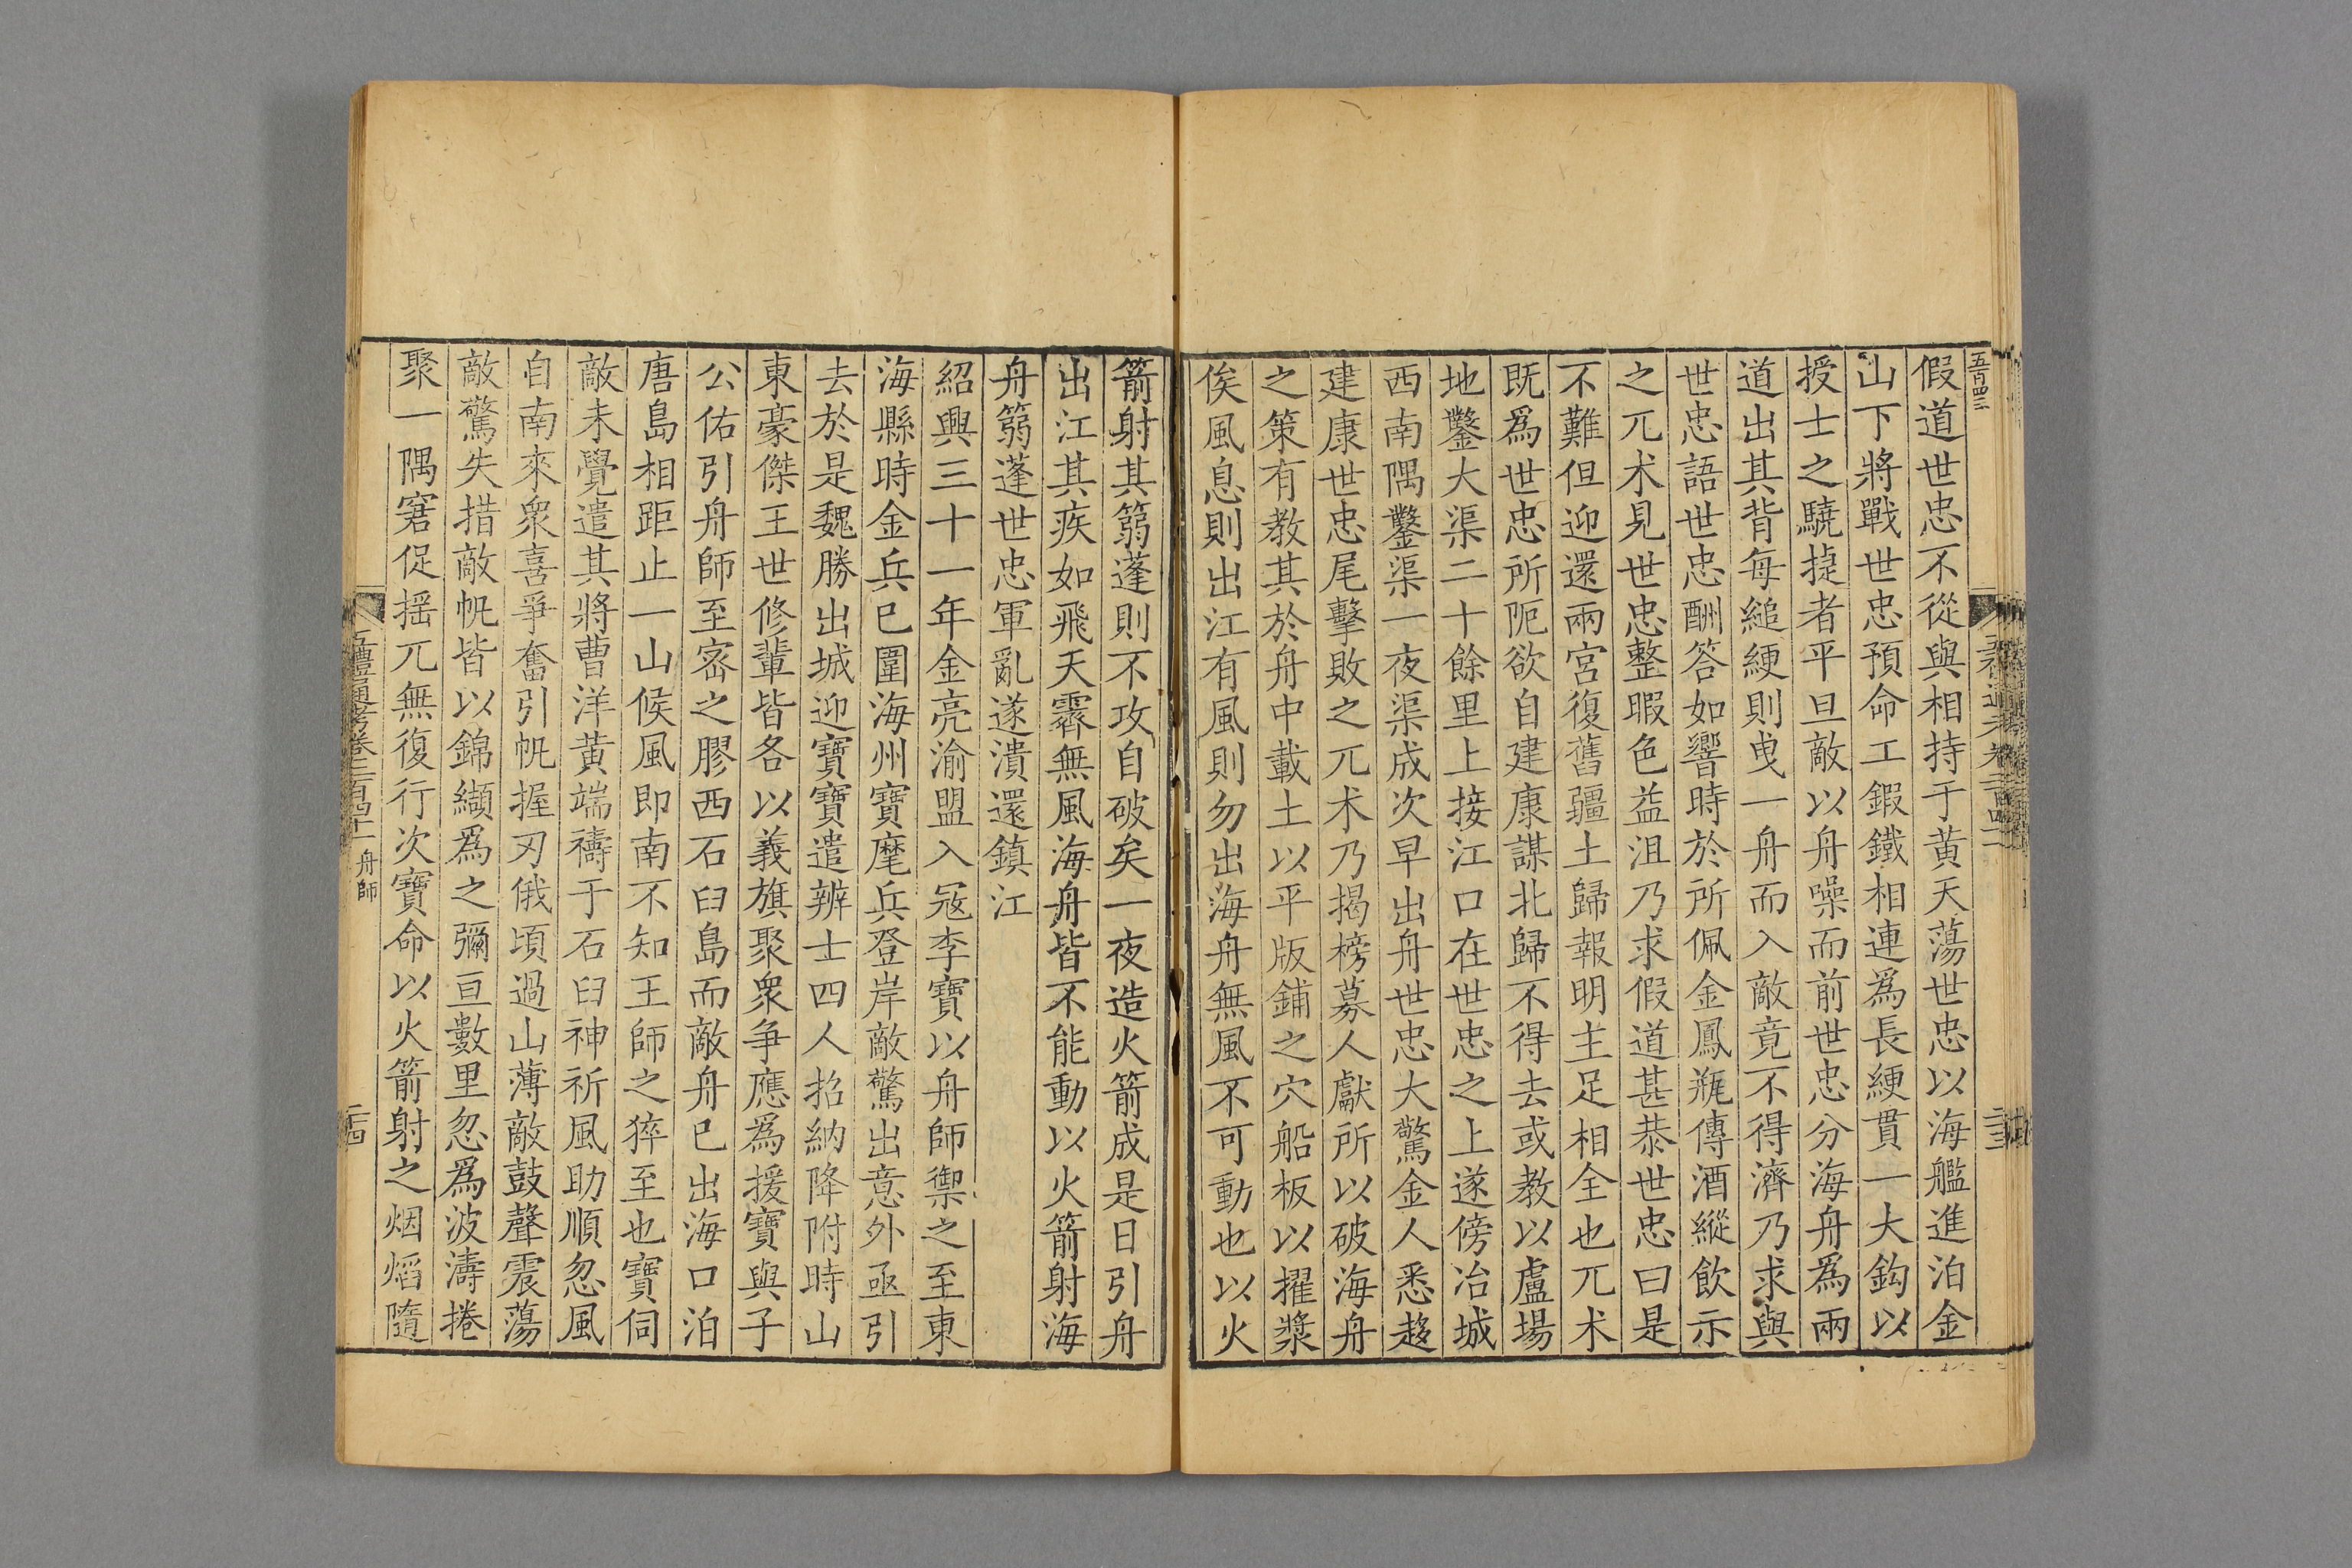 五百四三
假道世忠不從與相持于黃天蕩世忠以海艦進泊金
山下將戰世忠預命工鍜鐵相連爲長綆貫一大鈎以
授士之驍捷者平旦敵以舟噪而前世忠分海舟爲兩
道出其背每縋綆則曵一舟而入敵竟不得濟乃求與
世忠語世忠酬答如響時於所佩金鳳甁傳酒縱飲示
之兀术見世忠整暇色益沮乃求假道甚恭世忠曰是
不難但迎還兩宮復舊疆土歸報明主足相全也兀术
既爲世忠所阨欲自建康謀北歸不得去或教以盧場
地鑿大渠二十餘里上接江口在世忠之上遂傍冶城
西南隅鑿渠一夜渠成次早出舟世忠大驚金人悉趍
建康世忠尾擊敗之兀术乃揭榜募人獻所以破海舟
之策有教其於舟中載土以平版鋪之穴船板以擢槳
俟風息則出江有風則勿出海舟無風不可動也以火
箭射其篛蓬則不攻自破矣一夜造火箭成是日引舟
出江其疾如飛天霽無風海舟皆不能動以火箭射海
舟篛蓬世忠軍亂遂潰還鎮江
紹興三十一年金亮渝盟入冦李寶以舟師禦之至東
海縣時金兵已圍海州寶麾兵登岸敵驚出意外亟引
去於是魏勝出城迎寶寶遣辨士四人招納降附時山
東豪傑王世修輩皆各以義旗聚衆争應爲援寶與子
公佑引舟師至宻之膠西石臼島而敵舟已出海口泊
唐島相距止一山候風即南不知王師之猝至也寶伺
敵未覺遣其將曹洋黃端禱于石臼神祈風助順忽風
自南來衆喜爭奮引帆握刃俄頃過山薄敵鼓聲震蕩
敵驚失措敵帆皆以錦纈爲之彌亘數里忽爲波濤捲
聚一隅窘促揺兀無復行次寶命以火箭射之烟熖隨
五禮通考卷二百四十一 舟師
二十四